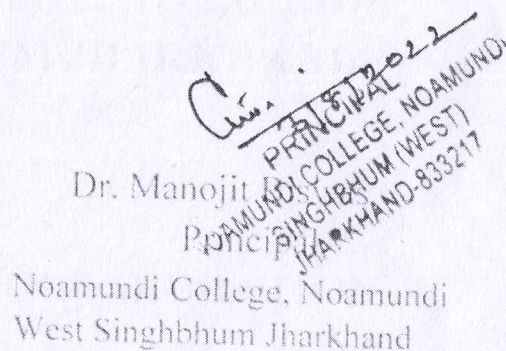 3/8/2022
PRINCIPAL
NOAMUNDI COLLEGE, NOAMUNDI
SINGHBHUM (WEST)
JHARKHAND-833217
Dr. Manojit
Principal
Noamundi College, Noamundi
West Singhbhum Jharkhand